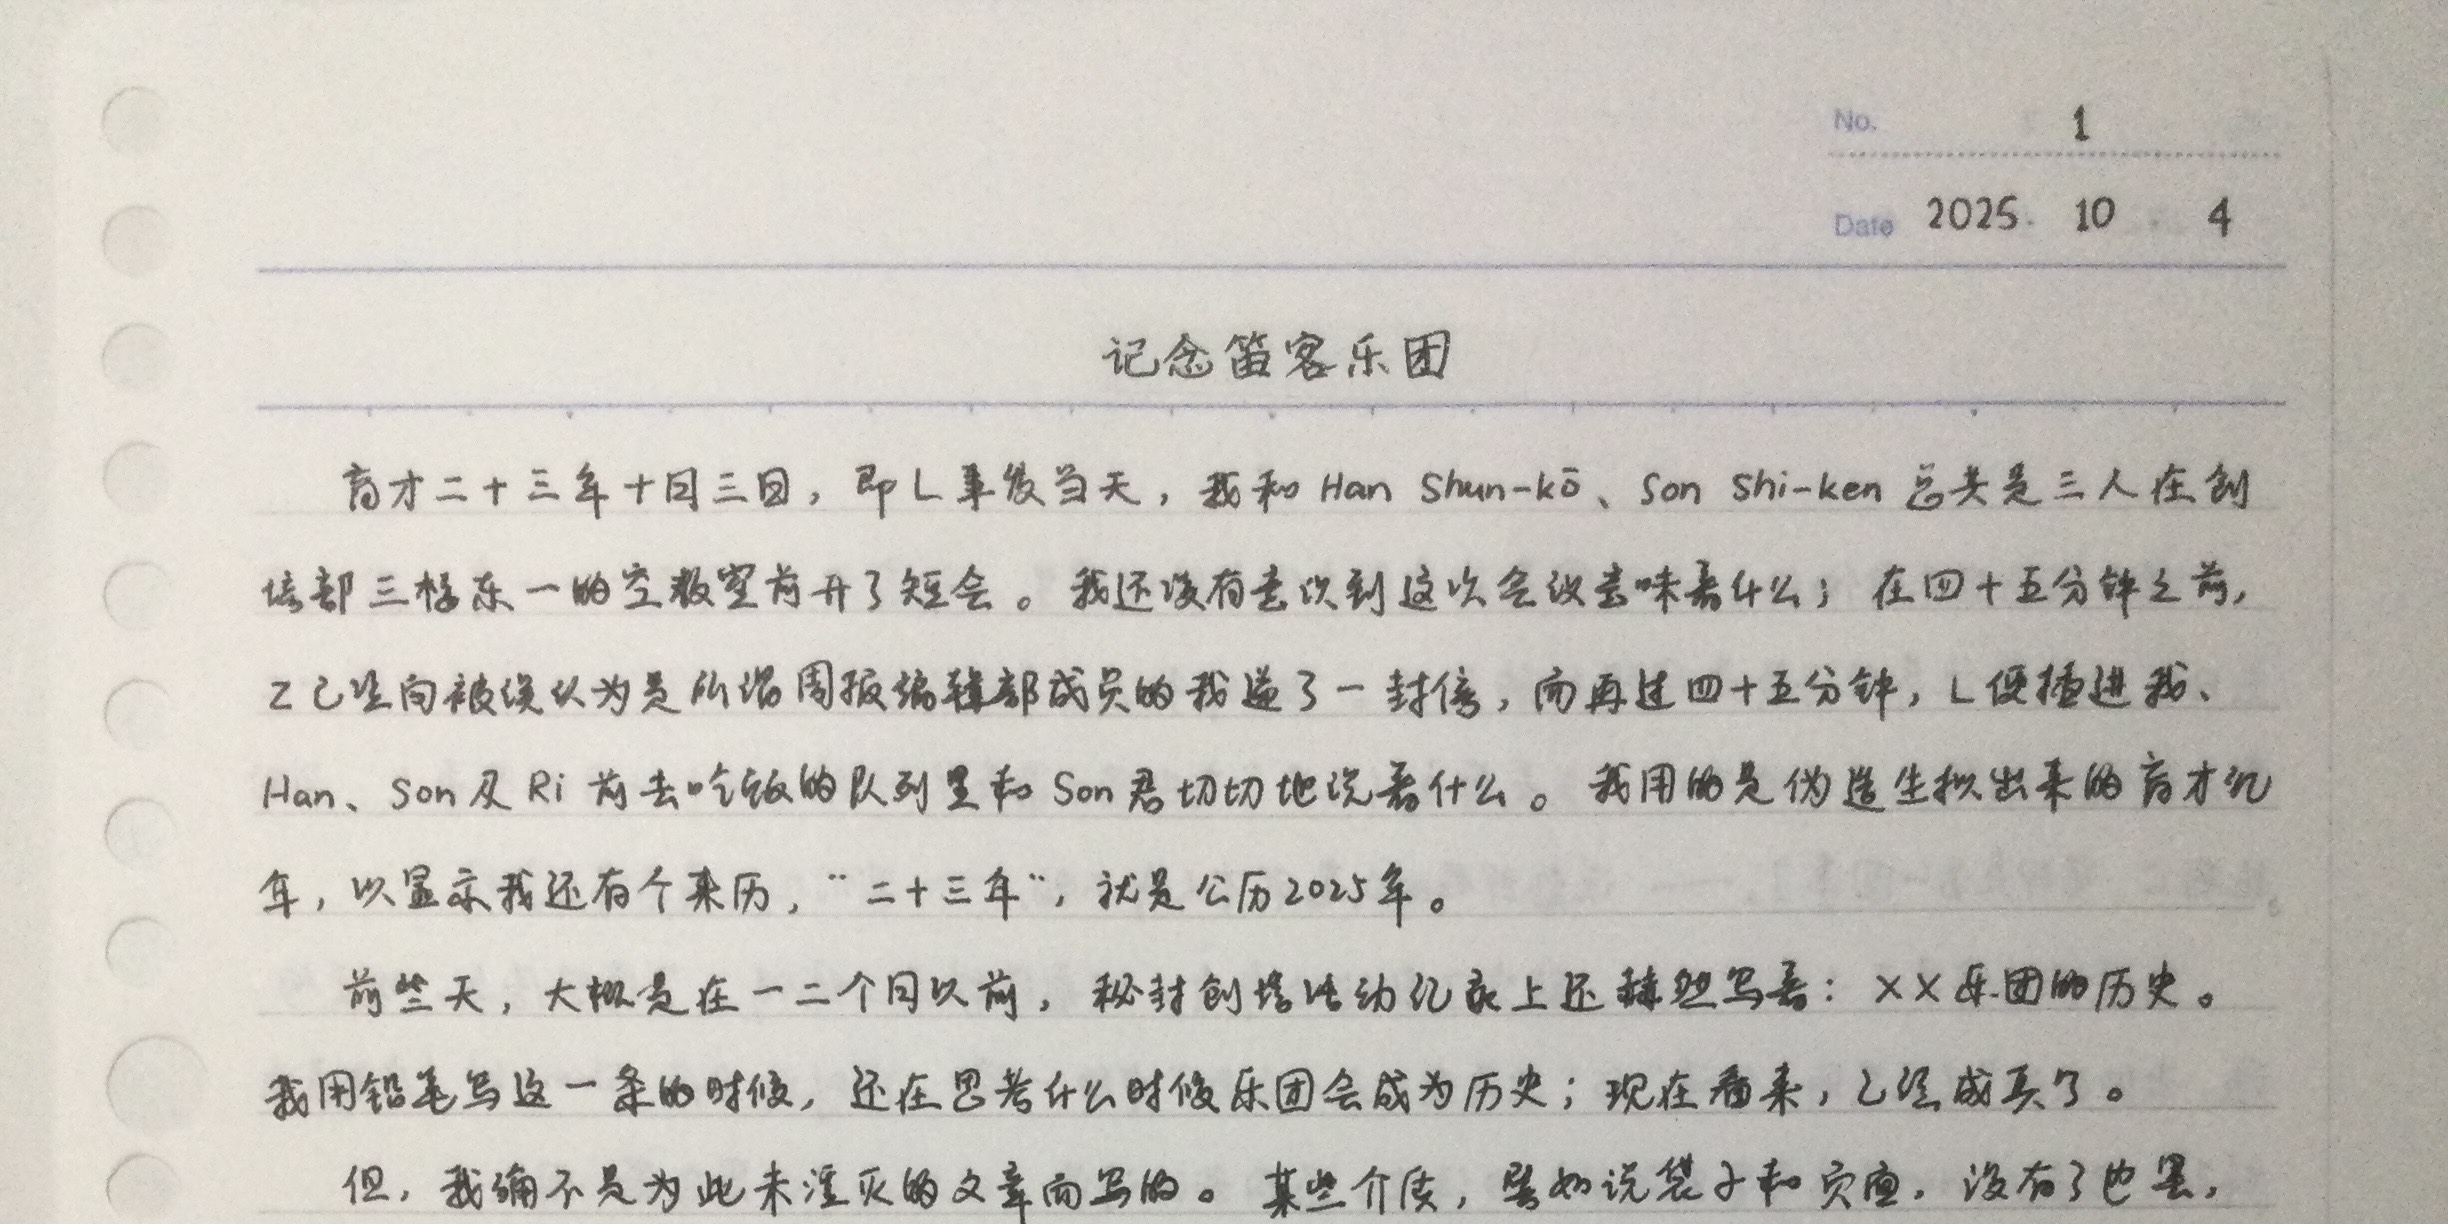 No. 1
Date 2025. 10 . 4
记念笛客乐团
育才二十三年十月三日，即L事发当天，我和 Han Shun-kō、Son Shi-ken 总共是三人在创
培部三楼东一的空教室前开了短会。我还没有意识到这次会议意味着什么；在四十五分钟之前，
Z已经向被误认为是所谓周报编辑部成员的我递了一封信，而再过四十五分钟，L便插进我、
Han、Son及Ri 前去吃饭的队列里和 Son君切切地说着什么。我用的是伪造生拟出来的育才纪
年，以显示我还有个来历，“二十三年”，就是公历2025年。
前些天，大概是在一二个月以前，秘封创培活动纪录上还赫然写着：××乐团的历史。
我用铅笔写这一条的时候，还在思考什么时候乐团会成为历史；现在看来，已经成真了。
但，我确不是为此未湮灭的文章而写的。某些介质，譬如说袋子和页面，没有了也罢，